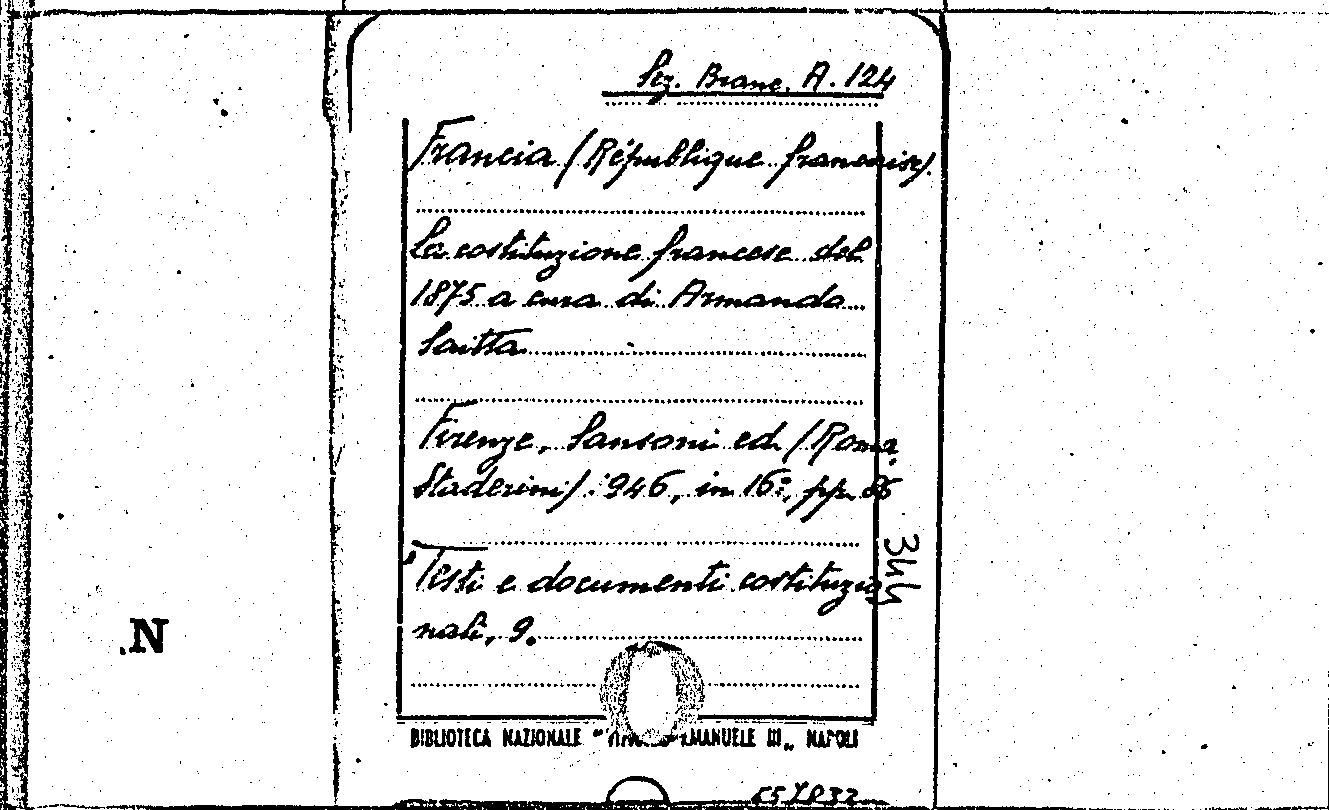 Sez. Branc. A. 124
Francia (République française).
La costituzione francese del
1875 a cura di Armando
Saitta
Firenze, Sansoni ed. (Roma
Staderini) 946, in 16°, pp. 86
Testi e documenti costituzio
nali, 9.
344
N
BIBLIOTECA NAZIONALE " EMANUELE III„ NAPOLI
557832